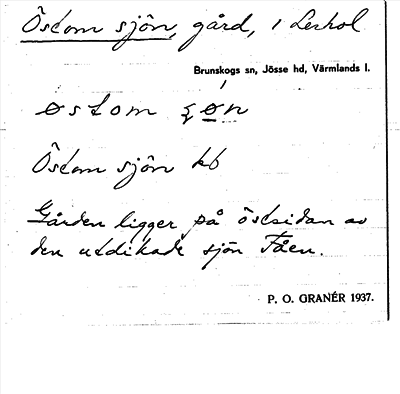 Östom sjön, gård, i Lerhol
Brunskogs sn, Jösse hd, Värmlands l.
østom ʂøn
Östom sjön kb
Gården ligger på östsidan av
den utdikade sjön Tåen.
P. O. GRANÉR 1937.